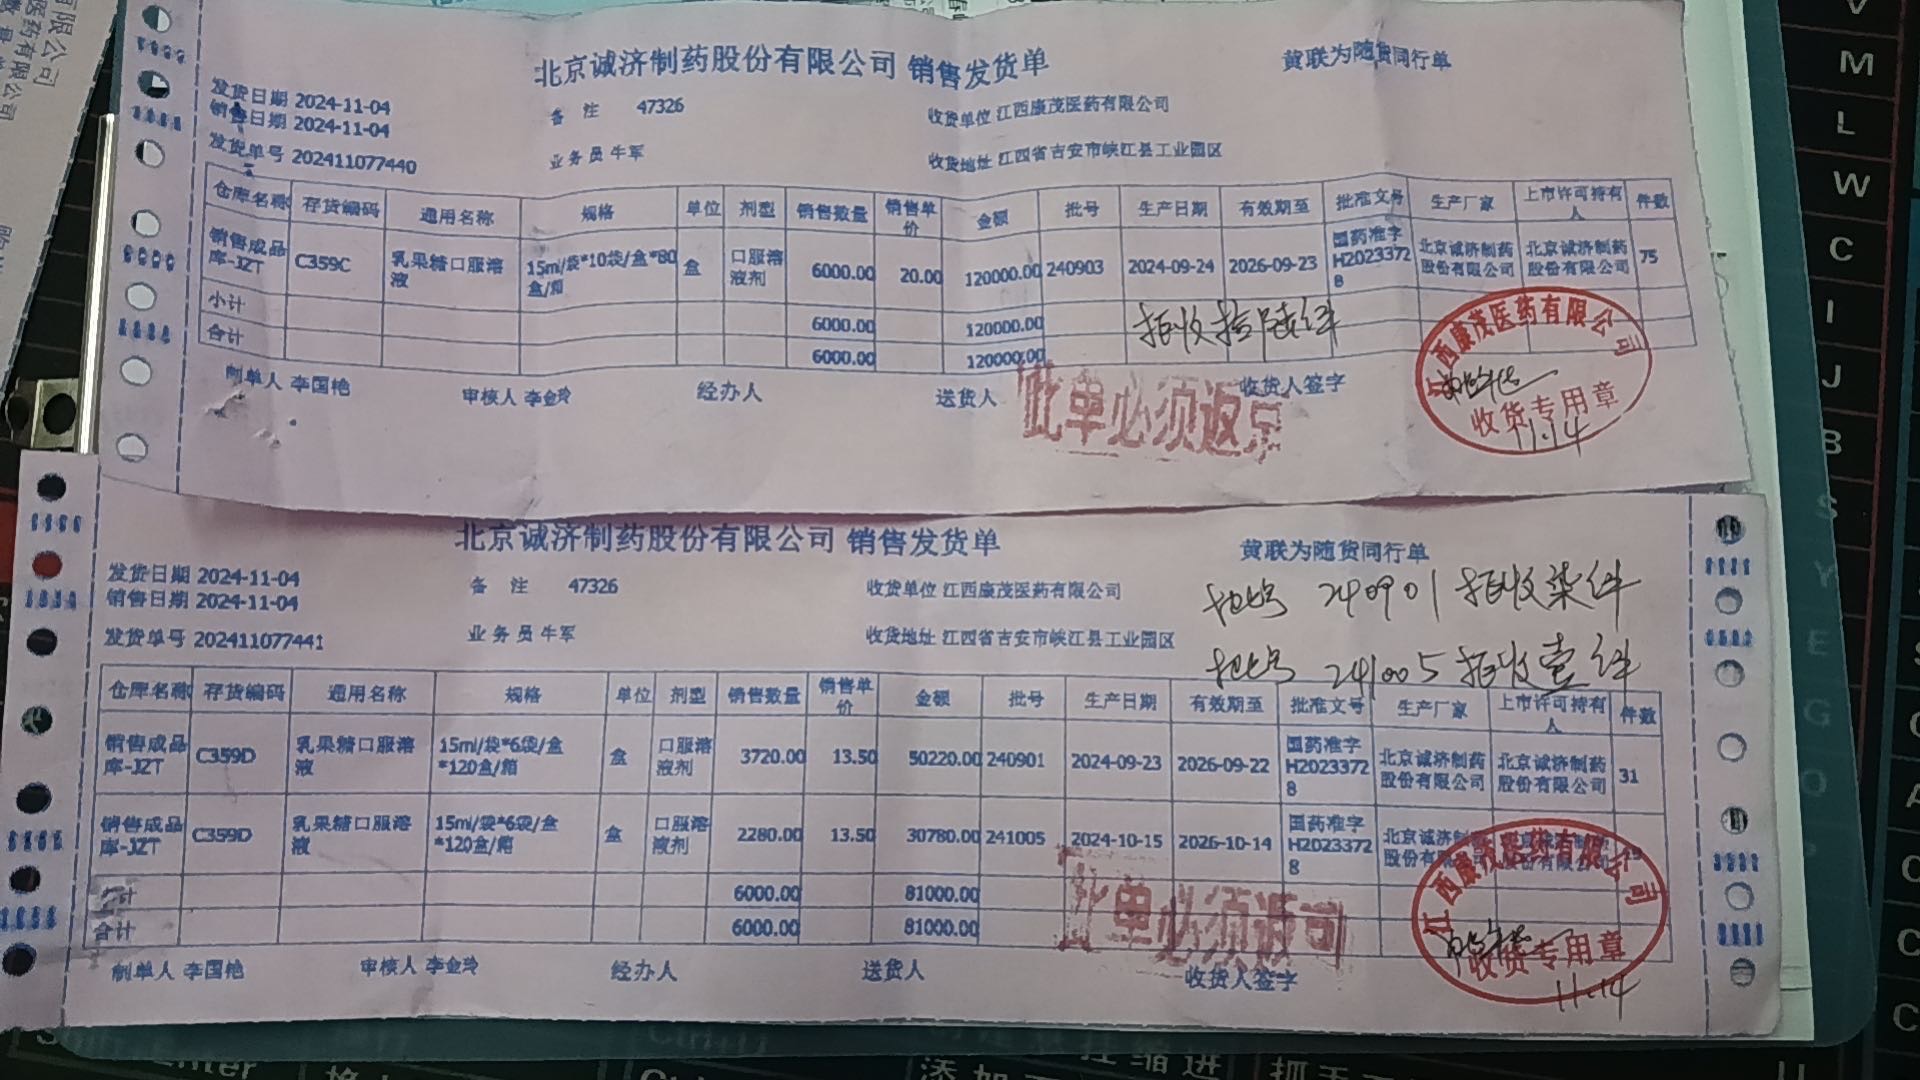 北京诚济制药股份有限公司 销售发货单
黄联为随货同行单
发货日期 2024-11-04
销售日期 2024-11-04
备 注 47326
收货单位 江西康茂医药有限公司
发货单号 202411077440
业务员 牛军
收货地址 江西省吉安市峡江县工业园区
仓库名称 存货编码 通用名称 规格 单位 剂型 销售数量 销售单价 金额 批号 生产日期 有效期至 批准文号 生产厂家 上市许可持有人 件数
销售成品库-JZT C359C 乳果糖口服溶液 15ml/袋*10袋/盒*80盒/箱 盒 口服溶液剂 6000.00 20.00 120000.00 240903 2024-09-24 2026-09-23 国药准字H20233728 北京诚济制药股份有限公司 北京诚济制药股份有限公司 75
小计 6000.00 120000.00
合计 6000.00 120000.00
拒收拾陆件
制单人 李国艳 审核人 李金玲 经办人 送货人 收货人签字
此单必须返京
江西康茂医药有限公司
收货专用章
11.14
北京诚济制药股份有限公司 销售发货单
黄联为随货同行单
发货日期 2024-11-04
销售日期 2024-11-04
备 注 47326
收货单位 江西康茂医药有限公司
批号 240901 拒收柒件
发货单号 202411077441
业务员 牛军
收货地址 江西省吉安市峡江县工业园区
批号 241005 拒收壹件
仓库名称 存货编码 通用名称 规格 单位 剂型 销售数量 销售单价 金额 批号 生产日期 有效期至 批准文号 生产厂家 上市许可持有人 件数
销售成品库-JZT C359D 乳果糖口服溶液 15ml/袋*6袋/盒*120盒/箱 盒 口服溶液剂 3720.00 13.50 50220.00 240901 2024-09-23 2026-09-22 国药准字H20233728 北京诚济制药股份有限公司 北京诚济制药股份有限公司 31
销售成品库-JZT C359D 乳果糖口服溶液 15ml/袋*6袋/盒*120盒/箱 盒 口服溶液剂 2280.00 13.50 30780.00 241005 2024-10-15 2026-10-14 国药准字H20233728 北京诚济制药股份有限公司 北京诚济制药股份有限公司 19
小计 6000.00 81000.00
合计 6000.00 81000.00
制单人 李国艳 审核人 李金玲 经办人 送货人 收货人签字
此单必须返司
江西康茂医药有限公司
收货专用章
11.14